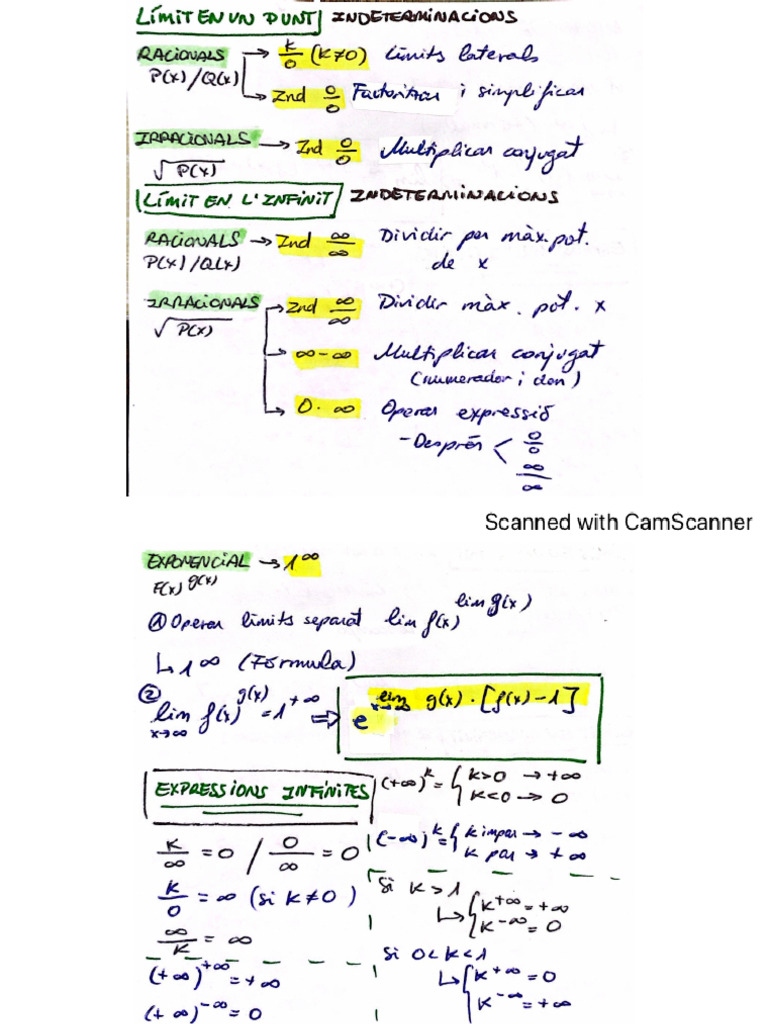 LÍMIT EN UN PUNT INDETERMINACIONS
RACIONALS → K/0 (K≠0) límits laterals
P(x)/Q(x)
→ Ind 0/0 Factoritzar i simplificar
IRRACIONALS → Ind 0/0 Multiplicar conjugat
√P(x)
LÍMIT EN L'INFINIT INDETERMINACIONS
RACIONALS → Ind ∞/∞ Dividir per màx. pot.
P(x)/Q(x) de x
IRRACIONALS → Ind ∞/∞ Dividir màx. pot. x
√P(x)
→ ∞-∞ Multiplicar conjugat
(numerador i den)
→ 0·∞ Operar expressió
- Després < 0/0
∞/∞
Scanned with CamScanner
EXPONENCIAL → 1^∞
F(x)^g(x)
① Operar límits separat lim f(x)^lim g(x)
↳ 1^∞ (Fórmula)
② lim x→∞ f(x)^g(x) = 1^+∞ ⇒ e^lim x→∞ g(x)·[f(x)-1]
EXPRESSIONS INFINITES
K/∞ = 0 / 0/∞ = 0
K/0 = ∞ (si K≠0)
∞/K = ∞
(+∞)^+∞ = +∞
(+∞)^-∞ = 0
(+∞)^K = { K>0 → +∞
K<0 → 0
(-∞)^K = { K impar → -∞
K par → +∞
Si K>1
↳ { K^+∞ = +∞
K^-∞ = 0
Si 0<K<1
↳ { K^+∞ = 0
K^-∞ = +∞